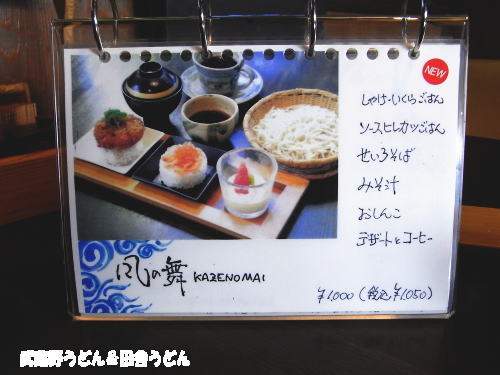 NEW
しゃけ・いくらごはん
ソースヒレカツごはん
せいろそば
みそ汁
おしんこ
デザートとコーヒー
風の舞 KAZENOMAI
¥1,000 (税込¥1,050)
武蔵野うどん&田舎うどん